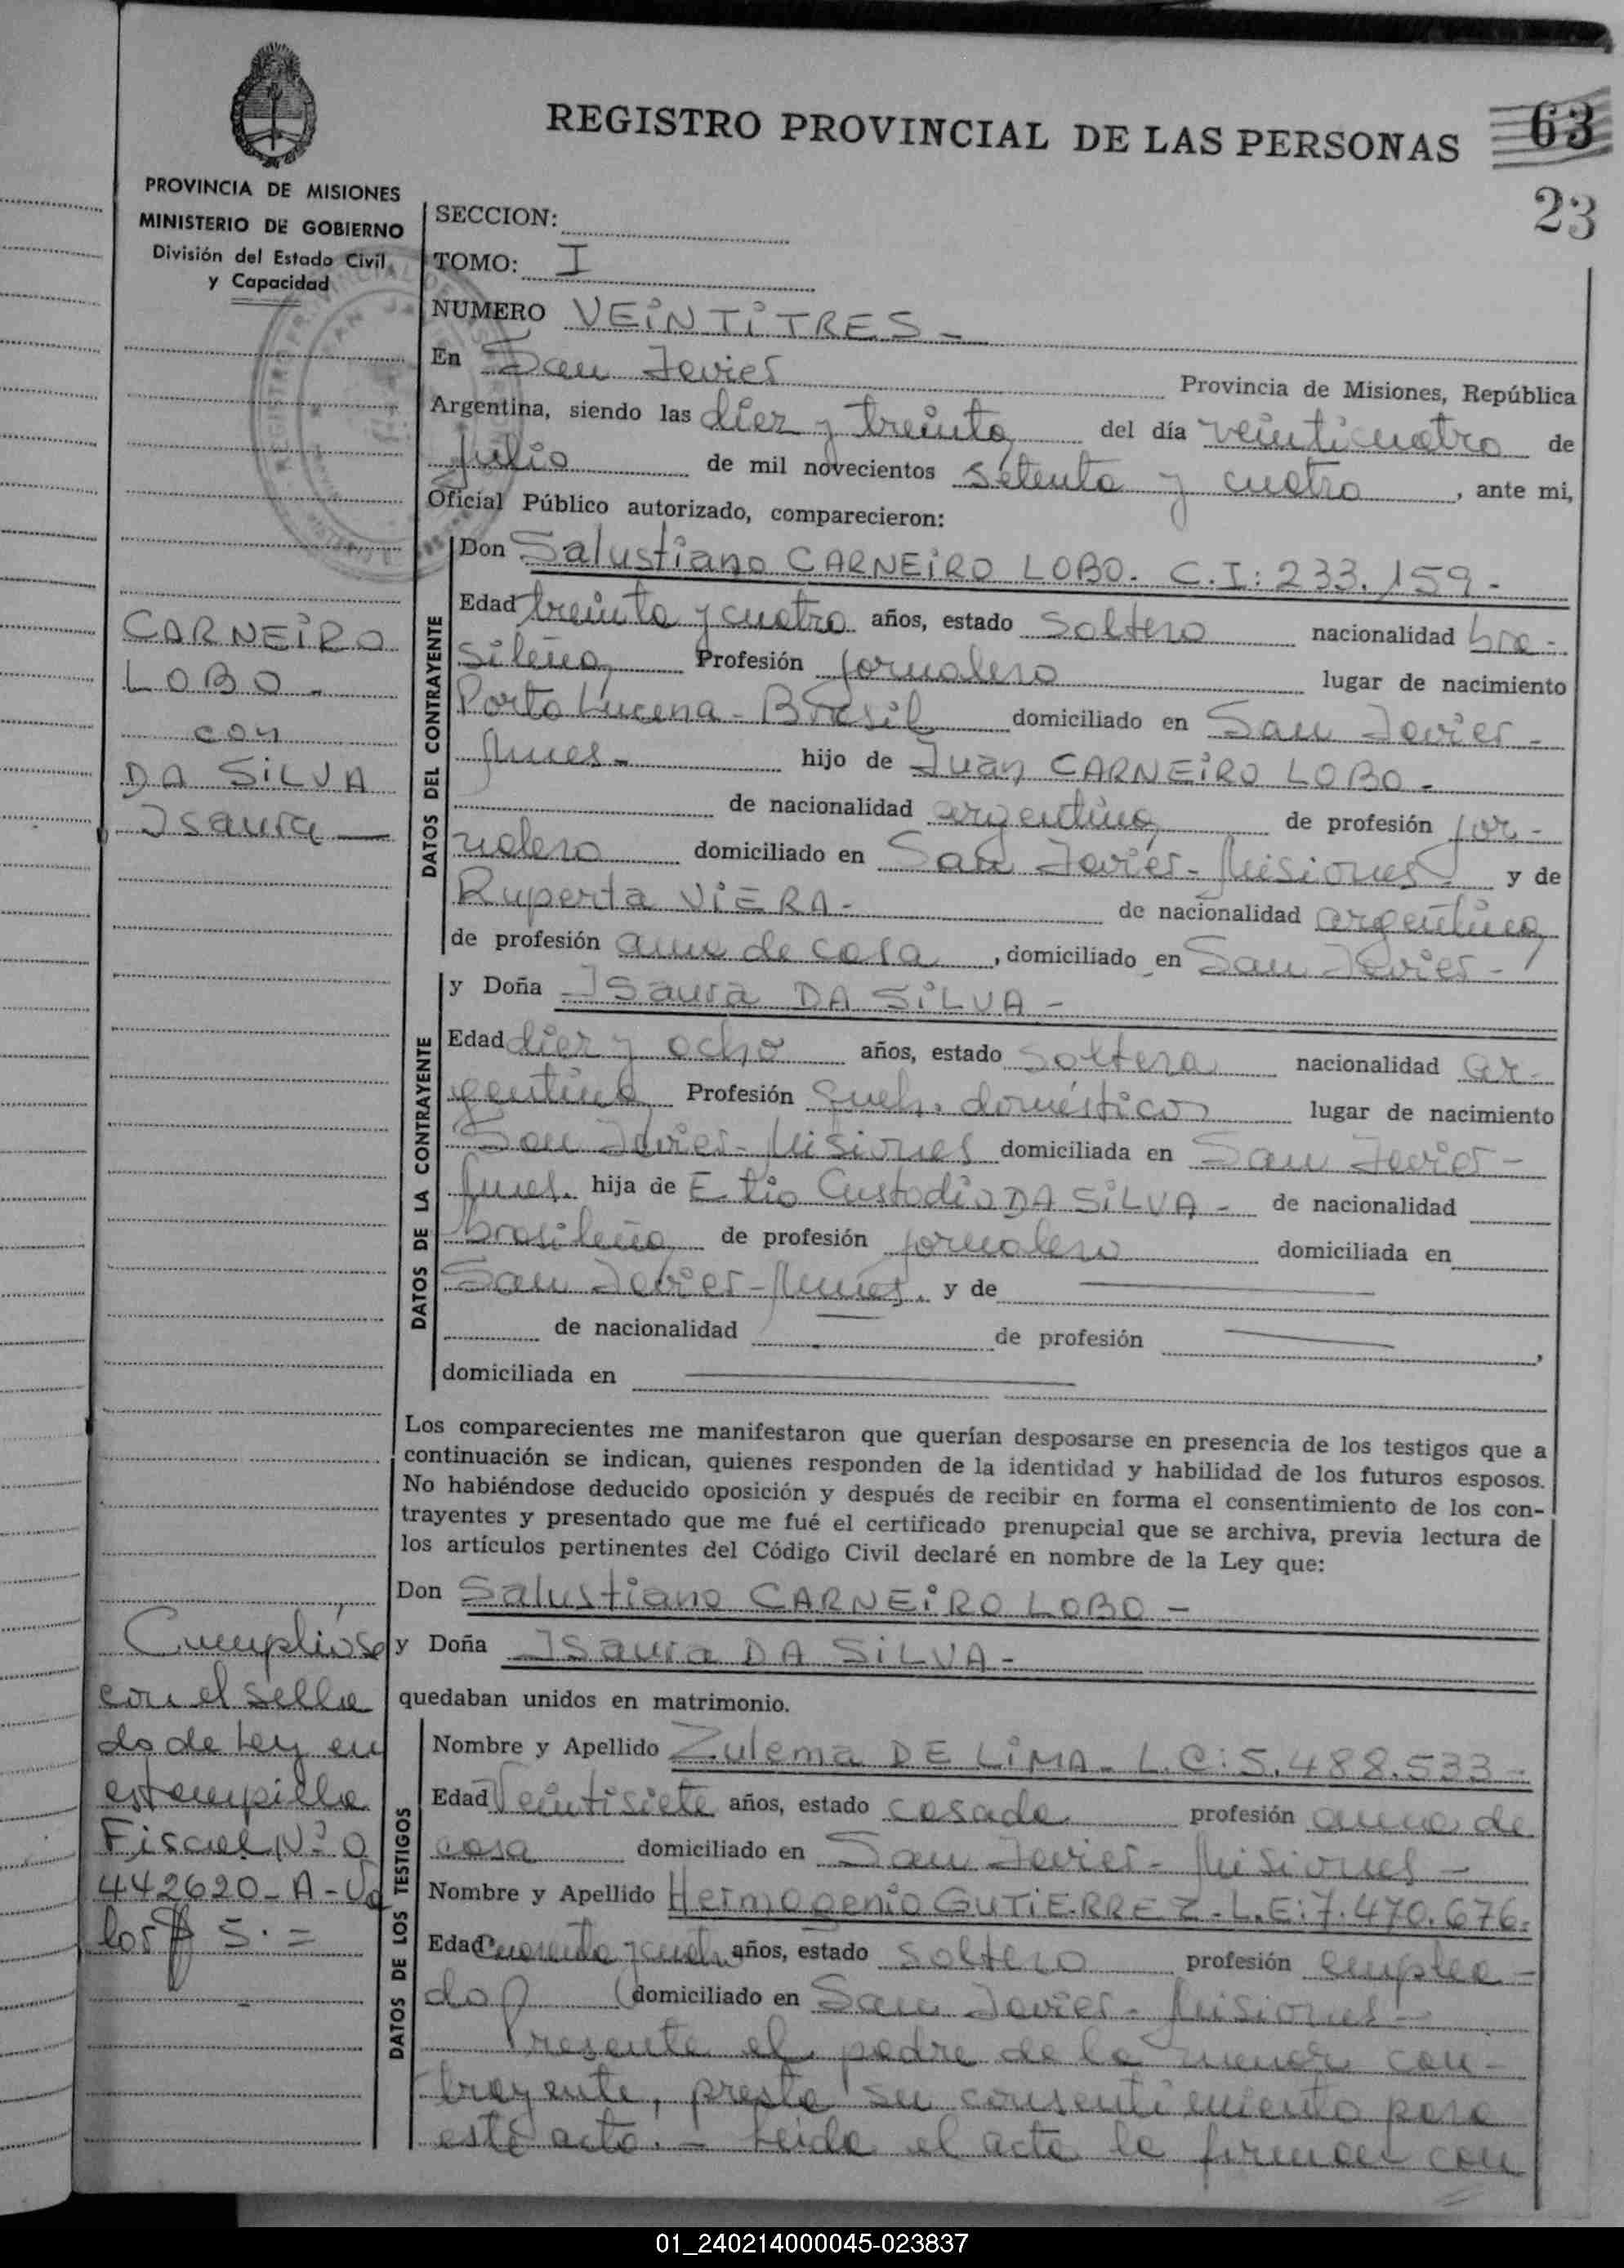 REGISTRO PROVINCIAL DE LAS PERSONAS
63
23
PROVINCIA DE MISIONES
MINISTERIO DE GOBIERNO
División del Estado Civil
y Capacidad
SECCION:
TOMO: I
NUMERO VEINTITRES -
En San Javier Provincia de Misiones, República
Argentina, siendo las diez y treinta del día veinticuatro de
julio de mil novecientos setenta y cuatro, ante mi,
Oficial Público autorizado, comparecieron:
CARNEIRO
LOBO -
con
DA SILVA
Isaura —
DATOS DEL CONTRAYENTE
Don Salustiano CARNEIRO LOBO. C.I: 233.159 -
Edad treinta y cuatro años, estado soltero nacionalidad bra-
sileña, Profesión jornalero lugar de nacimiento
Porto Lucena - Brasil domiciliado en San Javier -
Mnes - hijo de Juan CARNEIRO LOBO -
de nacionalidad argentina, de profesión jor-
nalero domiciliado en San Javier - Misiones - y de
Ruperta VIERA - de nacionalidad argentina,
de profesión ama de casa, domiciliado en San Javier -
DATOS DE LA CONTRAYENTE
y Doña Isaura DA SILVA -
Edad diez y ocho años, estado soltera nacionalidad ar-
gentina, Profesión queh. domésticos lugar de nacimiento
San Javier - Misiones domiciliada en San Javier -
Mnes. hija de Elio Custodio DA SILVA - de nacionalidad
brasileña, de profesión jornalero domiciliada en
San Javier - Mnes. y de
de nacionalidad de profesión ,
domiciliada en
Los comparecientes me manifestaron que querían desposarse en presencia de los testigos que a
continuación se indican, quienes responden de la identidad y habilidad de los futuros esposos.
No habiéndose deducido oposición y después de recibir en forma el consentimiento de los con-
trayentes y presentado que me fué el certificado prenupcial que se archiva, previa lectura de
los artículos pertinentes del Código Civil declaré en nombre de la Ley que:
Don Salustiano CARNEIRO LOBO -
y Doña Isaura DA SILVA -
quedaban unidos en matrimonio.
Cumplióse
con el sella
do de Ley en
estampilla
Fiscal Nº 0
442620 - A - Va
lor $ 5. =
DATOS DE LOS TESTIGOS
Nombre y Apellido Zulema DE LIMA - L.C: 5.488.533 -
Edad Veintisiete años, estado casada profesión ama de
casa domiciliado en San Javier - Misiones -
Nombre y Apellido Hermogenio GUTIERREZ - L.E: 7.470.676.
Edad Cuarenta y cuatro años, estado soltero profesión emplea-
do domiciliado en San Javier - Misiones -
Presente el padre de la menor con-
trayente, presta su consentimiento para
este acto. - Leida el acta la firman con
01_240214000045-023837